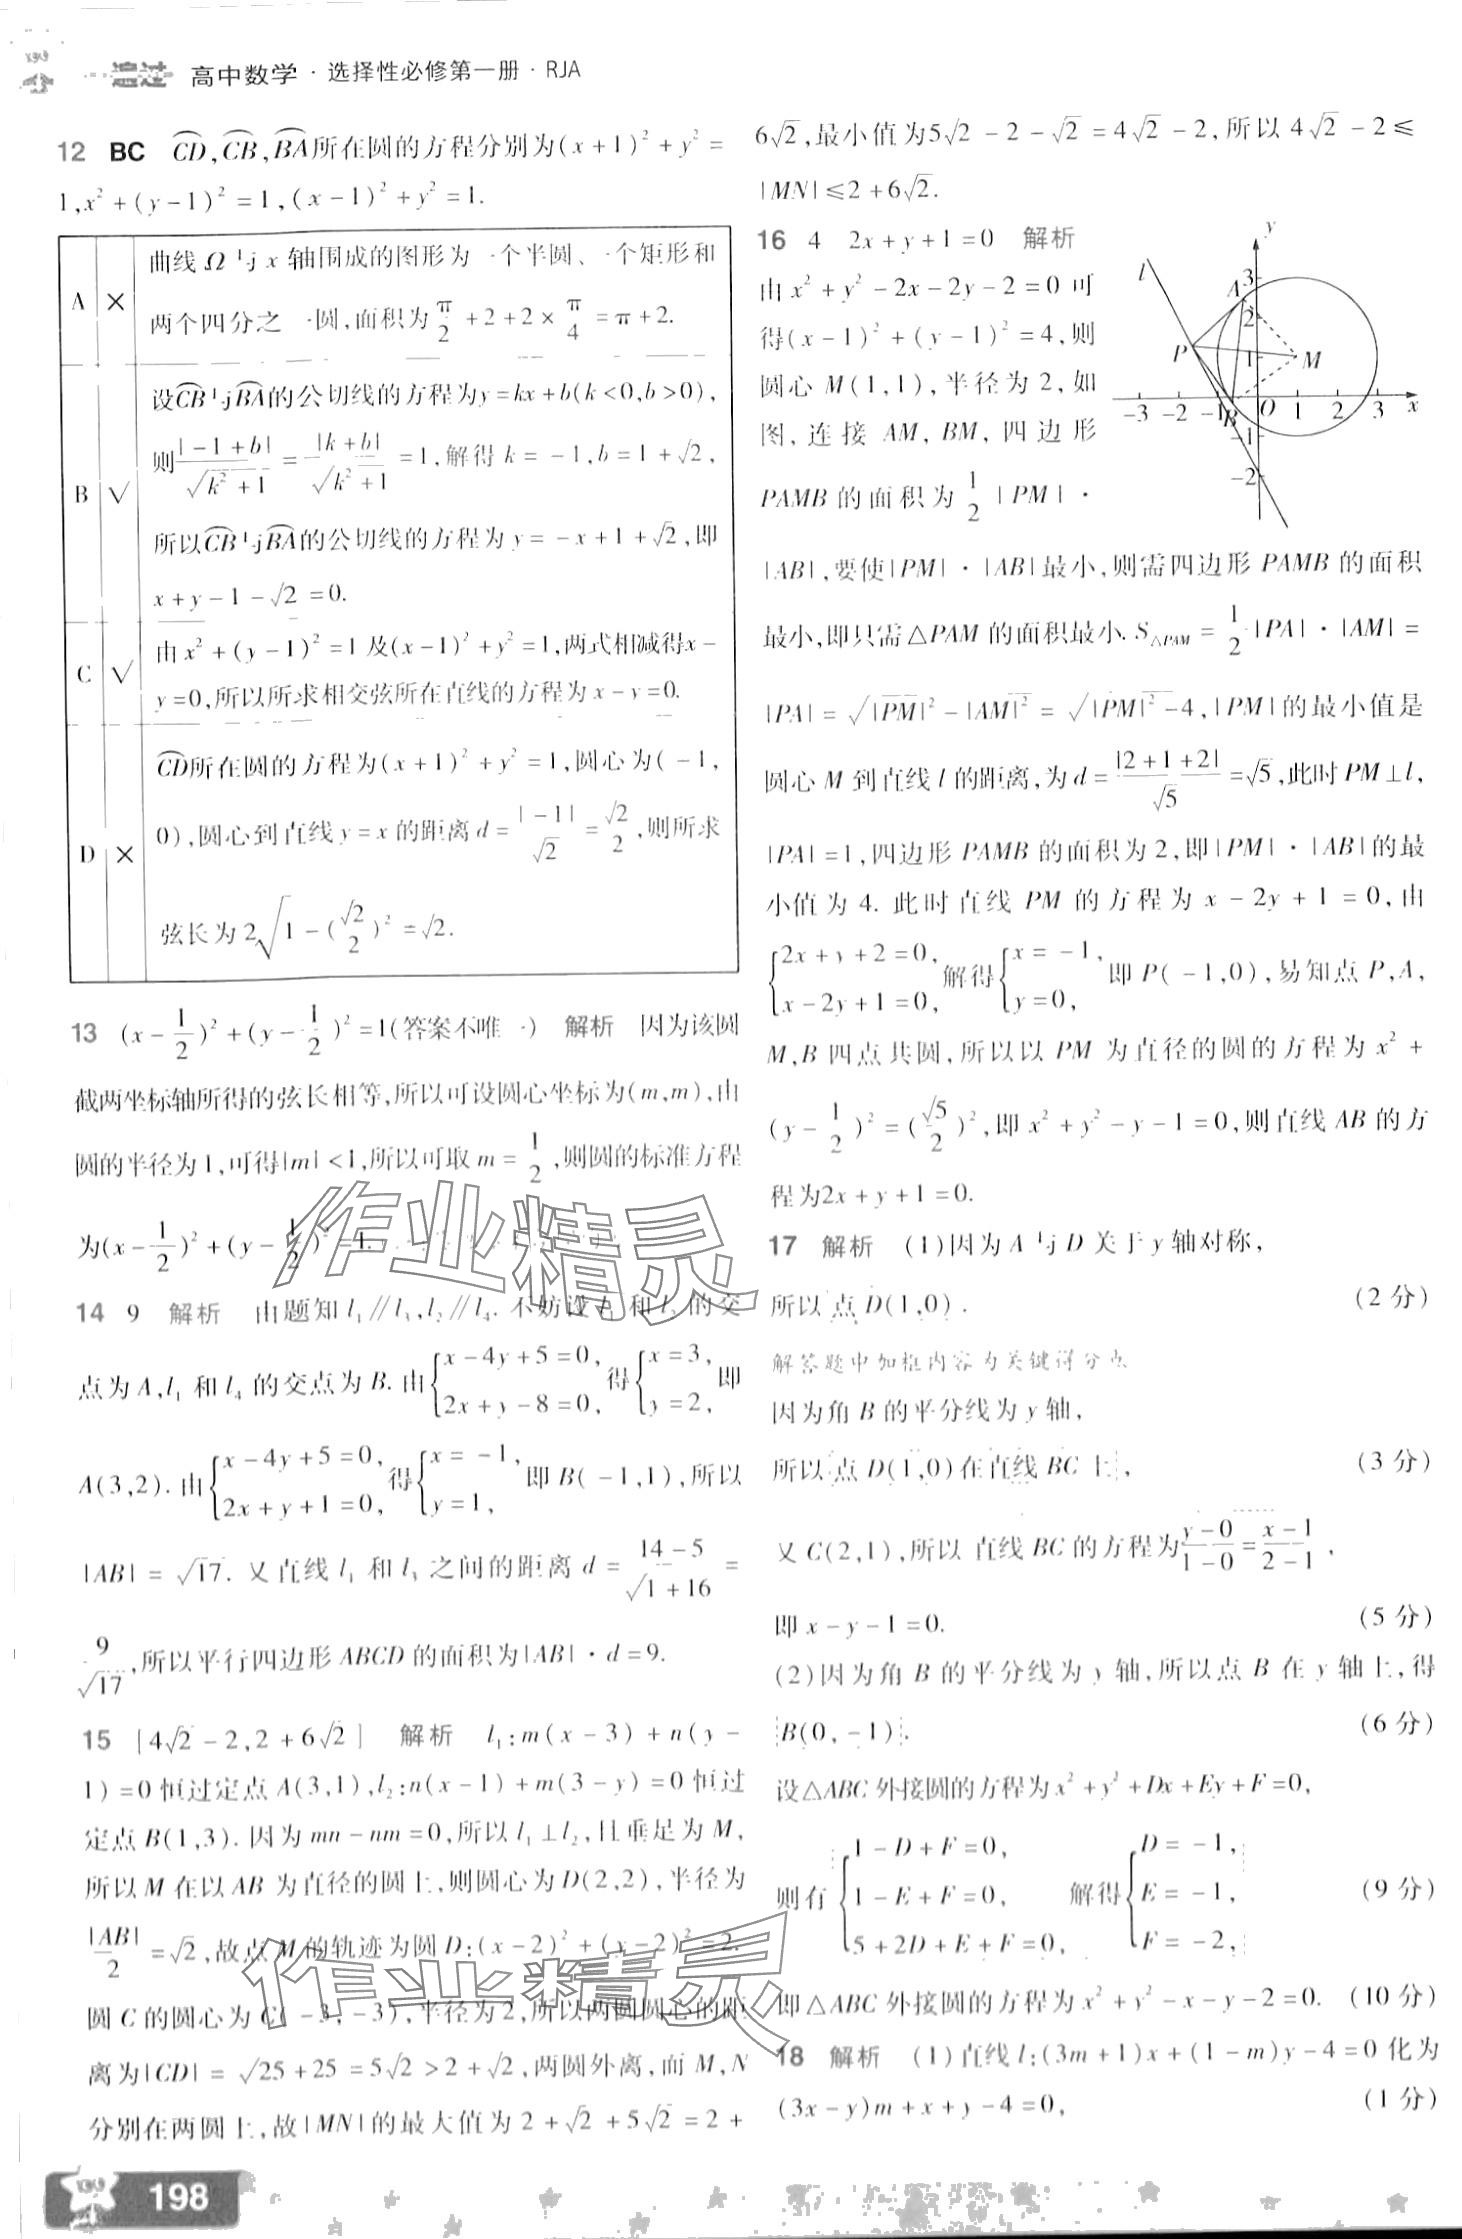 一遍过 高中数学·选择性必修第一册·RJA
12 BC CD,CB,BA所在圆的方程分别为(x+1)²+y²=
1,x²+(y-1)²=1,(x-1)²+y²=1.
A × 曲线Ω与x轴围成的图形为一个半圆、一个矩形和
两个四分之一圆,面积为π/2+2+2×π/4=π+2.
B √ 设CB与BA的公切线的方程为y=kx+b(k<0,b>0),
则|-1+b|/√(k²+1)=|k+b|/√(k²+1)=1,解得k=-1,b=1+√2,
所以CB与BA的公切线的方程为y=-x+1+√2,即
x+y-1-√2=0.
C √ 由x²+(y-1)²=1及(x-1)²+y²=1,两式相减得x-
y=0,所以所求相交弦所在直线的方程为x-y=0.
D × CD所在圆的方程为(x+1)²+y²=1,圆心为(-1,
0),圆心到直线y=x的距离d=|-1|/√2=√2/2,则所求
弦长为2√(1-(√2/2)²)=√2.
13 (x-1/2)²+(y-1/2)²=1(答案不唯一) 解析 因为该圆
截两坐标轴所得的弦长相等,所以可设圆心坐标为(m,m),由
圆的半径为1,可得|m|<1,所以可取m=1/2,则圆的标准方程
为(x-1/2)²+(y-1/2)²=1.
14 9 解析 由题知l₁∥l₃,l₂∥l₄.不妨设l₁和l₂的交
点为A,l₁和l₄的交点为B.由{x-4y+5=0,2x+y-8=0,得{x=3,y=2,即
A(3,2).由{x-4y+5=0,2x+y+1=0,得{x=-1,y=1,即B(-1,1),所以
|AB|=√17.又直线l₁和l₃之间的距离d=(14-5)/√(1+16)=
9/√17,所以平行四边形ABCD的面积为|AB|·d=9.
15 [4√2-2,2+6√2] 解析 l₁:m(x-3)+n(y-
1)=0恒过定点A(3,1),l₂:n(x-1)+m(3-y)=0恒过
定点B(1,3).因为mn-nm=0,所以l₁⊥l₂,且垂足为M,
所以M在以AB为直径的圆上,则圆心为D(2,2),半径为
|AB|/2=√2,故点M的轨迹为圆D:(x-2)²+(y-2)²=2.
圆C的圆心为C(-3,-3),半径为2,所以两圆圆心的距
离为|CD|=√(25+25)=5√2>2+√2,两圆外离,而M,N
分别在两圆上,故|MN|的最大值为2+√2+5√2=2+
6√2,最小值为5√2-2-√2=4√2-2,所以4√2-2≤
|MN|≤2+6√2.
16 4 2x+y+1=0 解析
由x²+y²-2x-2y-2=0可
得(x-1)²+(y-1)²=4,则
圆心M(1,1),半径为2,如
图,连接AM,BM,四边形
PAMB的面积为1/2|PM|·
y
l
A
3
2
P
1
M
-3 -2 -1 B O 1 2 3 x
-1
-2
|AB|,要使|PM|·|AB|最小,则需四边形PAMB的面积
最小,即只需△PAM的面积最小.S△PAM=1/2|PA|·|AM|=
|PA|=√(|PM|²-|AM|²)=√(|PM|²-4),|PM|的最小值是
圆心M到直线l的距离,为d=|2+1+2|/√5=√5,此时PM⊥l,
|PA|=1,四边形PAMB的面积为2,即|PM|·|AB|的最
小值为4.此时直线PM的方程为x-2y+1=0,由
{2x+y+2=0,x-2y+1=0,解得{x=-1,y=0,即P(-1,0),易知点P,A,
M,B四点共圆,所以以PM为直径的圆的方程为x²+
(y-1/2)²=(√5/2)²,即x²+y²-y-1=0,则直线AB的方
程为2x+y+1=0.
17 解析 (1)因为A与D关于y轴对称,
所以点D(1,0). (2分)
解答题中加框内容为关键得分点
因为角B的平分线为y轴,
所以点D(1,0)在直线BC上, (3分)
又C(2,1),所以直线BC的方程为(y-0)/(1-0)=(x-1)/(2-1),
即x-y-1=0. (5分)
(2)因为角B的平分线为y轴,所以点B在y轴上,得
B(0,-1). (6分)
设△ABC外接圆的方程为x²+y²+Dx+Ey+F=0,
则有{1-D+F=0,1-E+F=0,5+2D+E+F=0, 解得{D=-1,E=-1,F=-2, (9分)
即△ABC外接圆的方程为x²+y²-x-y-2=0. (10分)
18 解析 (1)直线l:(3m+1)x+(1-m)y-4=0化为
(3x-y)m+x+y-4=0, (1分)
作业精灵
作业精灵
198